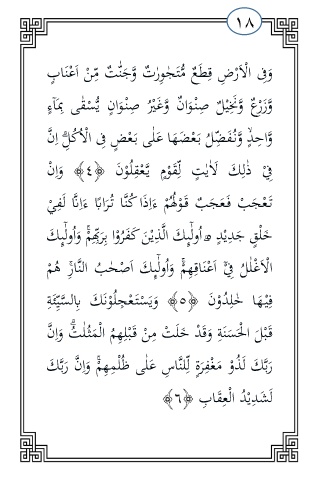 ١٨
وَفِى الْاَرْضِ قِطَعٌ مُّتَجٰوِرٰتٌ وَّجَنّٰتٌ مِّنْ اَعْنَابٍ
وَّزَرْعٌ وَّنَخِيْلٌ صِنْوَانٌ وَّغَيْرُ صِنْوَانٍ يُّسْقٰى بِمَآءٍ
وَّاحِدٍۙ وَّنُفَضِّلُ بَعْضَهَا عَلٰى بَعْضٍ فِى الْاُكُلِؕ اِنَّ
فِىْ ذٰلِكَ لَاٰيٰتٍ لِّقَوْمٍ يَّعْقِلُوْنَ ﴿٤﴾ وَاِنْ
تَعْجَبْ فَعَجَبٌ قَوْلُهُمْ ءَاِذَا كُنَّا تُرَابًا ءَاِنَّا لَفِىْ
خَلْقٍ جَدِيْدٍ ۵ اُولٰٓئِكَ الَّذِيْنَ كَفَرُوْا بِرَبِّهِمْۚ وَاُولٰٓئِكَ
الْاَغْلٰلُ فِىْۤ اَعْنَاقِهِمْۚ وَاُولٰٓئِكَ اَصْحٰبُ النَّارِۚ هُمْ
فِيْهَا خٰلِدُوْنَ ﴿٥﴾ وَيَسْتَعْجِلُوْنَكَ بِالسَّيِّئَةِ
قَبْلَ الْحَسَنَةِ وَقَدْ خَلَتْ مِنْ قَبْلِهِمُ الْمَثُلٰتُؕ وَاِنَّ
رَبَّكَ لَذُوْ مَغْفِرَةٍ لِّلنَّاسِ عَلٰى ظُلْمِهِمْۚ وَاِنَّ رَبَّكَ
لَشَدِيْدُ الْعِقَابِ ﴿٦﴾